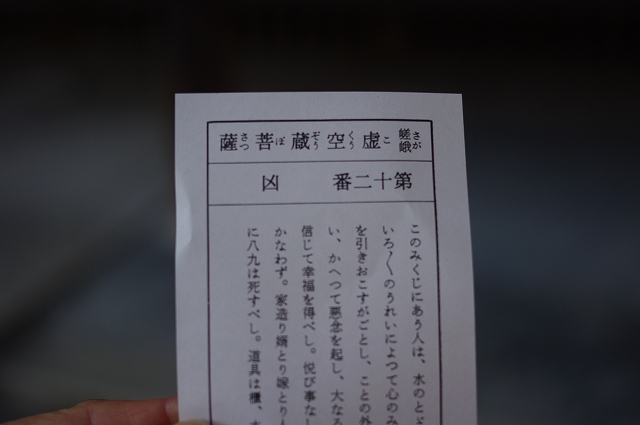 嵯峨虚空蔵菩薩
さがこくうぞうぼさつ
第十二番 凶
このみくじにあう人は、水のと
いろ〳〵のうれいによつて心のみ
を引きおこすがごとし、ことの外
い、かへつて悪念を起し、大な
信じて幸福を得べし。悦び事な
かなわず。家造り婿とり嫁とり
に八九は死すべし。道具は櫃、